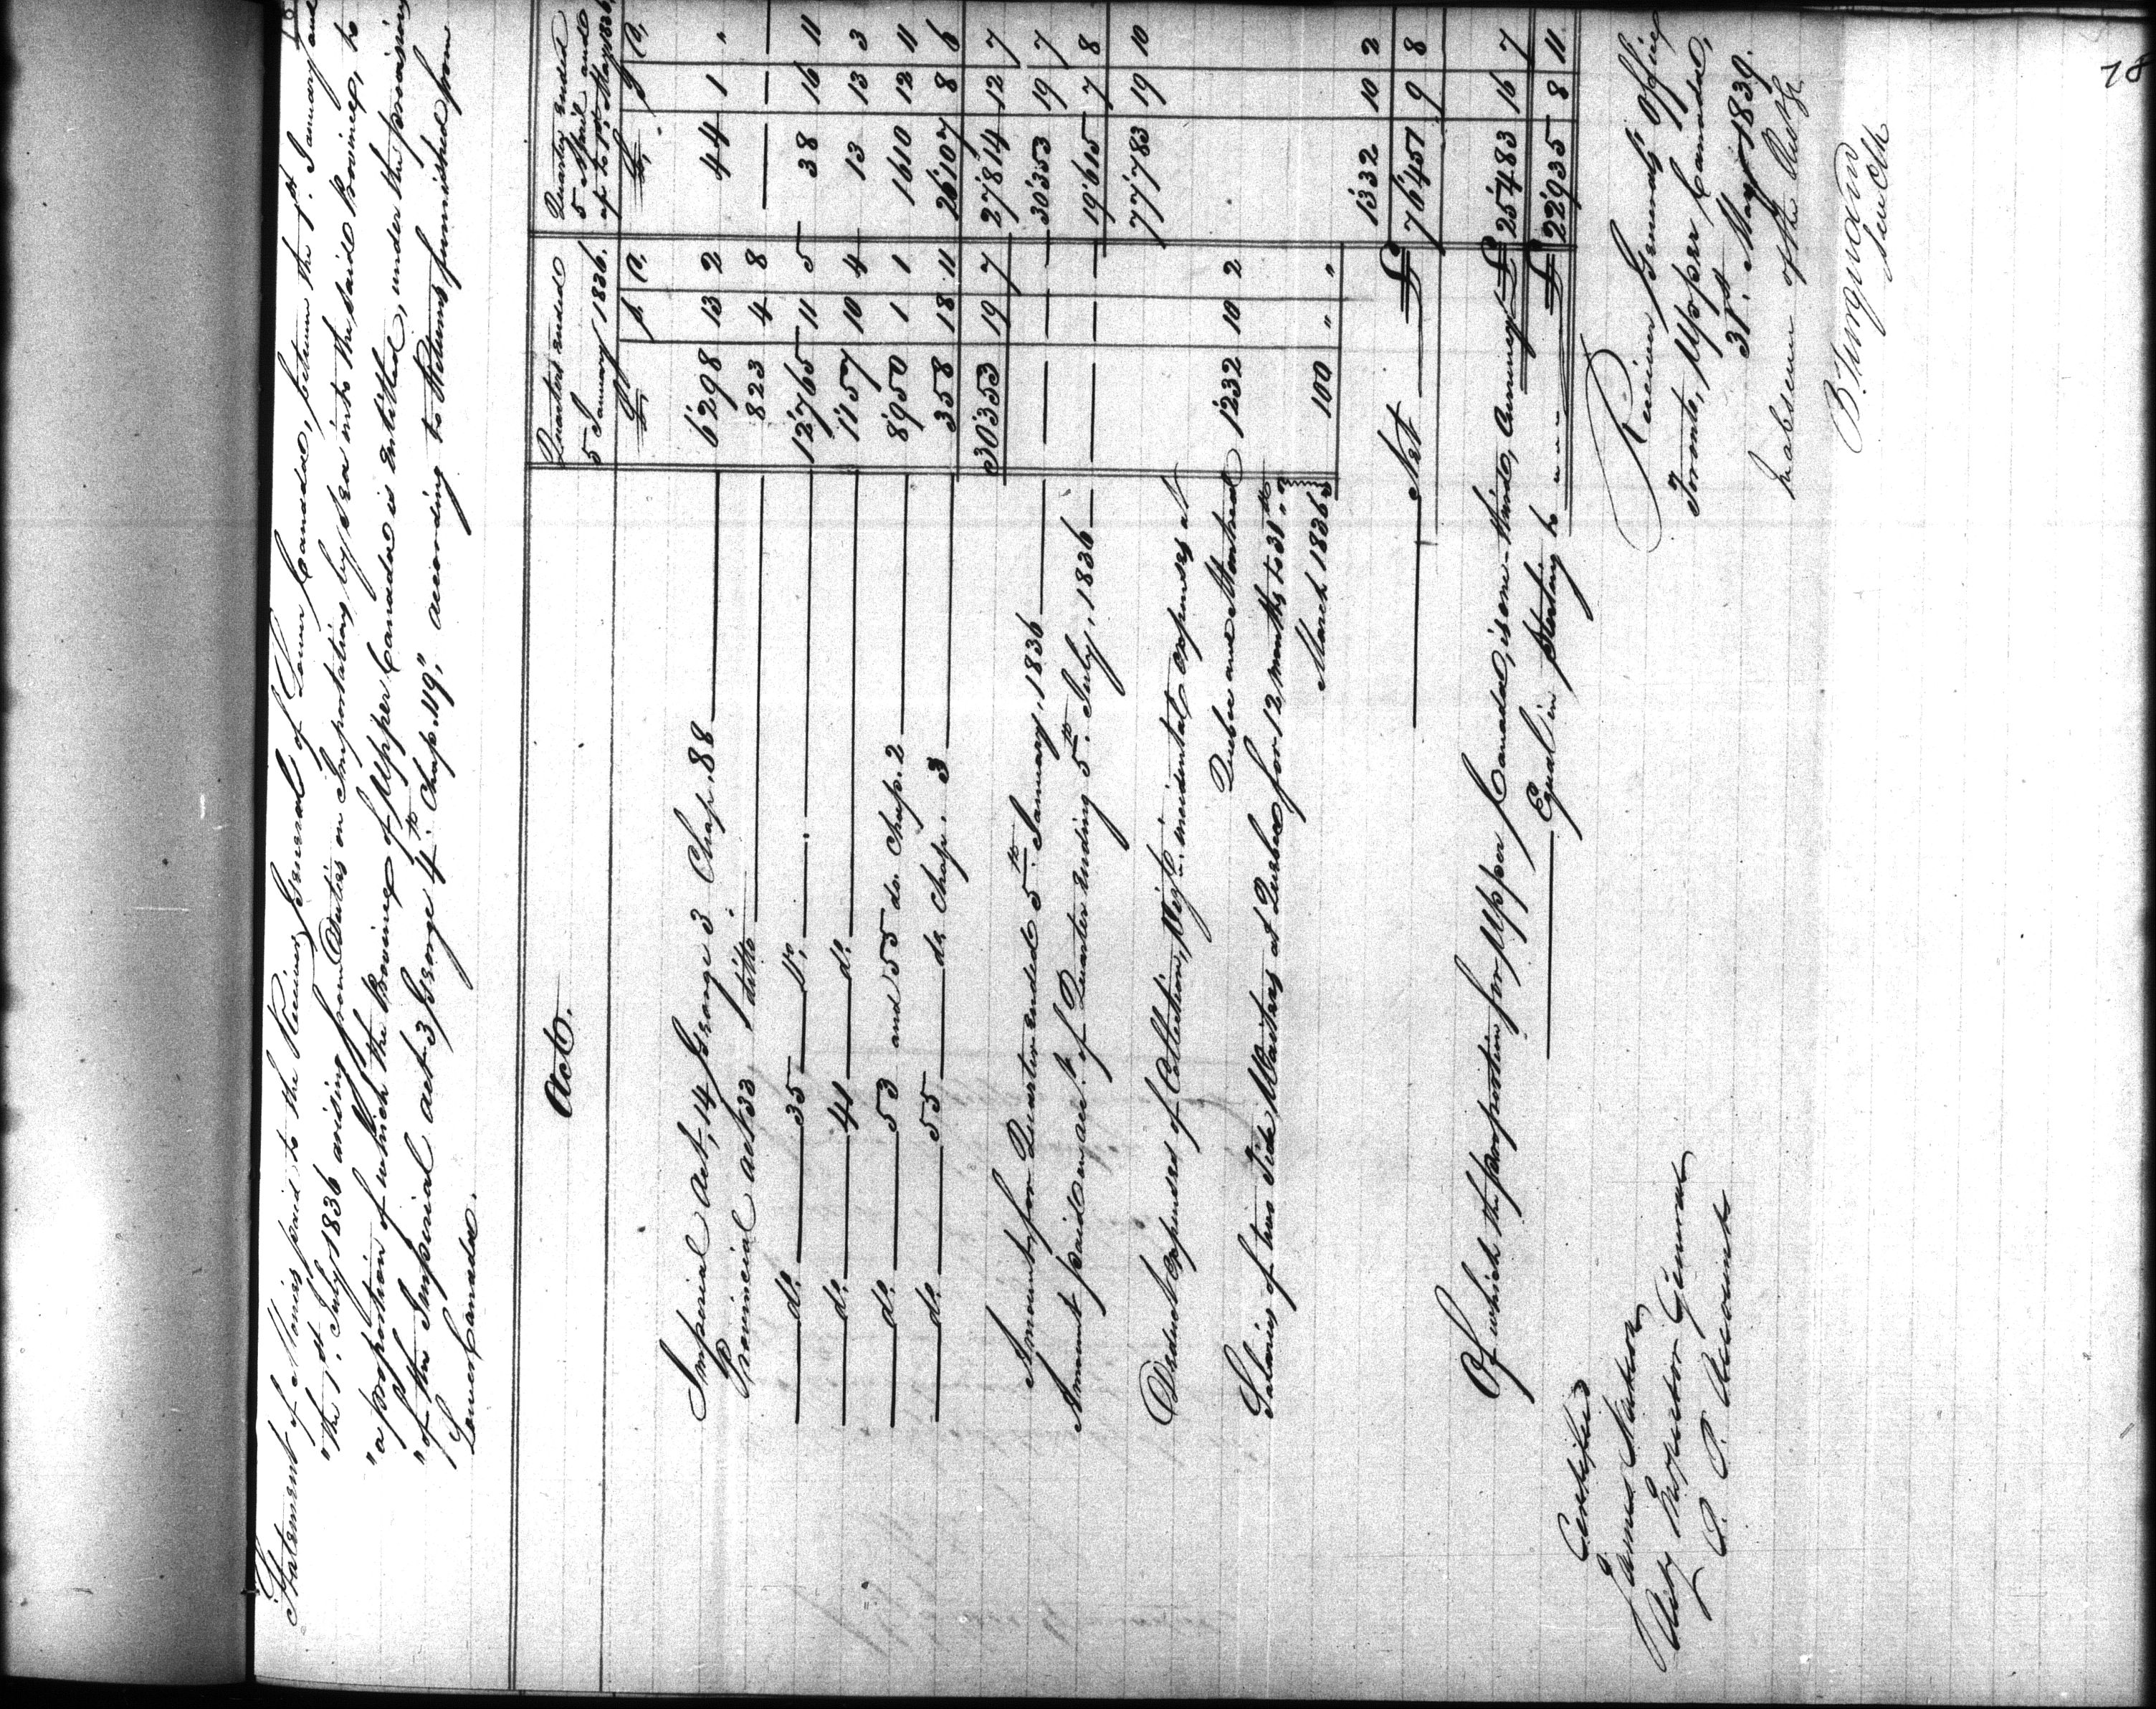 Statement of Monies paid to the Receiver General of Lower Canada, between the 1st January and
"the 1st July 1836 arising from Duties on Importations by Sea into the said Province, to
"a proportion of which the Province of Upper Canada is entitled, under the provisions
"of the Imperial act 3 George 4th Chap. 119," according to Returns furnished from
Lower Canada.
Acts. Quarters ended 5 January 1836. Quarter ended 5 April and up to 1st May 1836
£ s D. £ s D.
Imperial Act, 14 George 3 Chap. 88 6'298 13 2 44 1 "
Provincial act 33 ditto 823 4 8
do. 35 Do. 12'765 11 5 38 16 11
do. 41 do. 1'157 10 4 13 13 3
do. 53 and 55 do. Chap. 2 8'950 1 1 1610 12 11
do. 55 do. Chap. 3 358 18 11 26'107 8 6
30'353 19 7 27'814 12 7
Amount for Quarter ended 5th January, 1836 30'353 19 7
Amount paid on acct. of Quarter ending 5th July, 1836 19'615 7 8
77'783 19 10
Deduct expenses of Collection, Weighg. incidental expenses at
Quebec and Montreal 1'232 10 2
Salaries of two Tide Waiters at Quebec for 12 months to 31st
March 1836 100 " " 1332 10 2
Net £ 76'451 9 8
Of which the proportion for Upper Canada, is one-third, Currency £ 25'483 16 7
Equal in Sterling to £ 22'935 8 11
Certified
James
Dep Inspector General
P. P. Accounts
Receiver General's Office
Toronto, Upper Canada,
31st May 1839.
In absence of the
B. Turquand
78